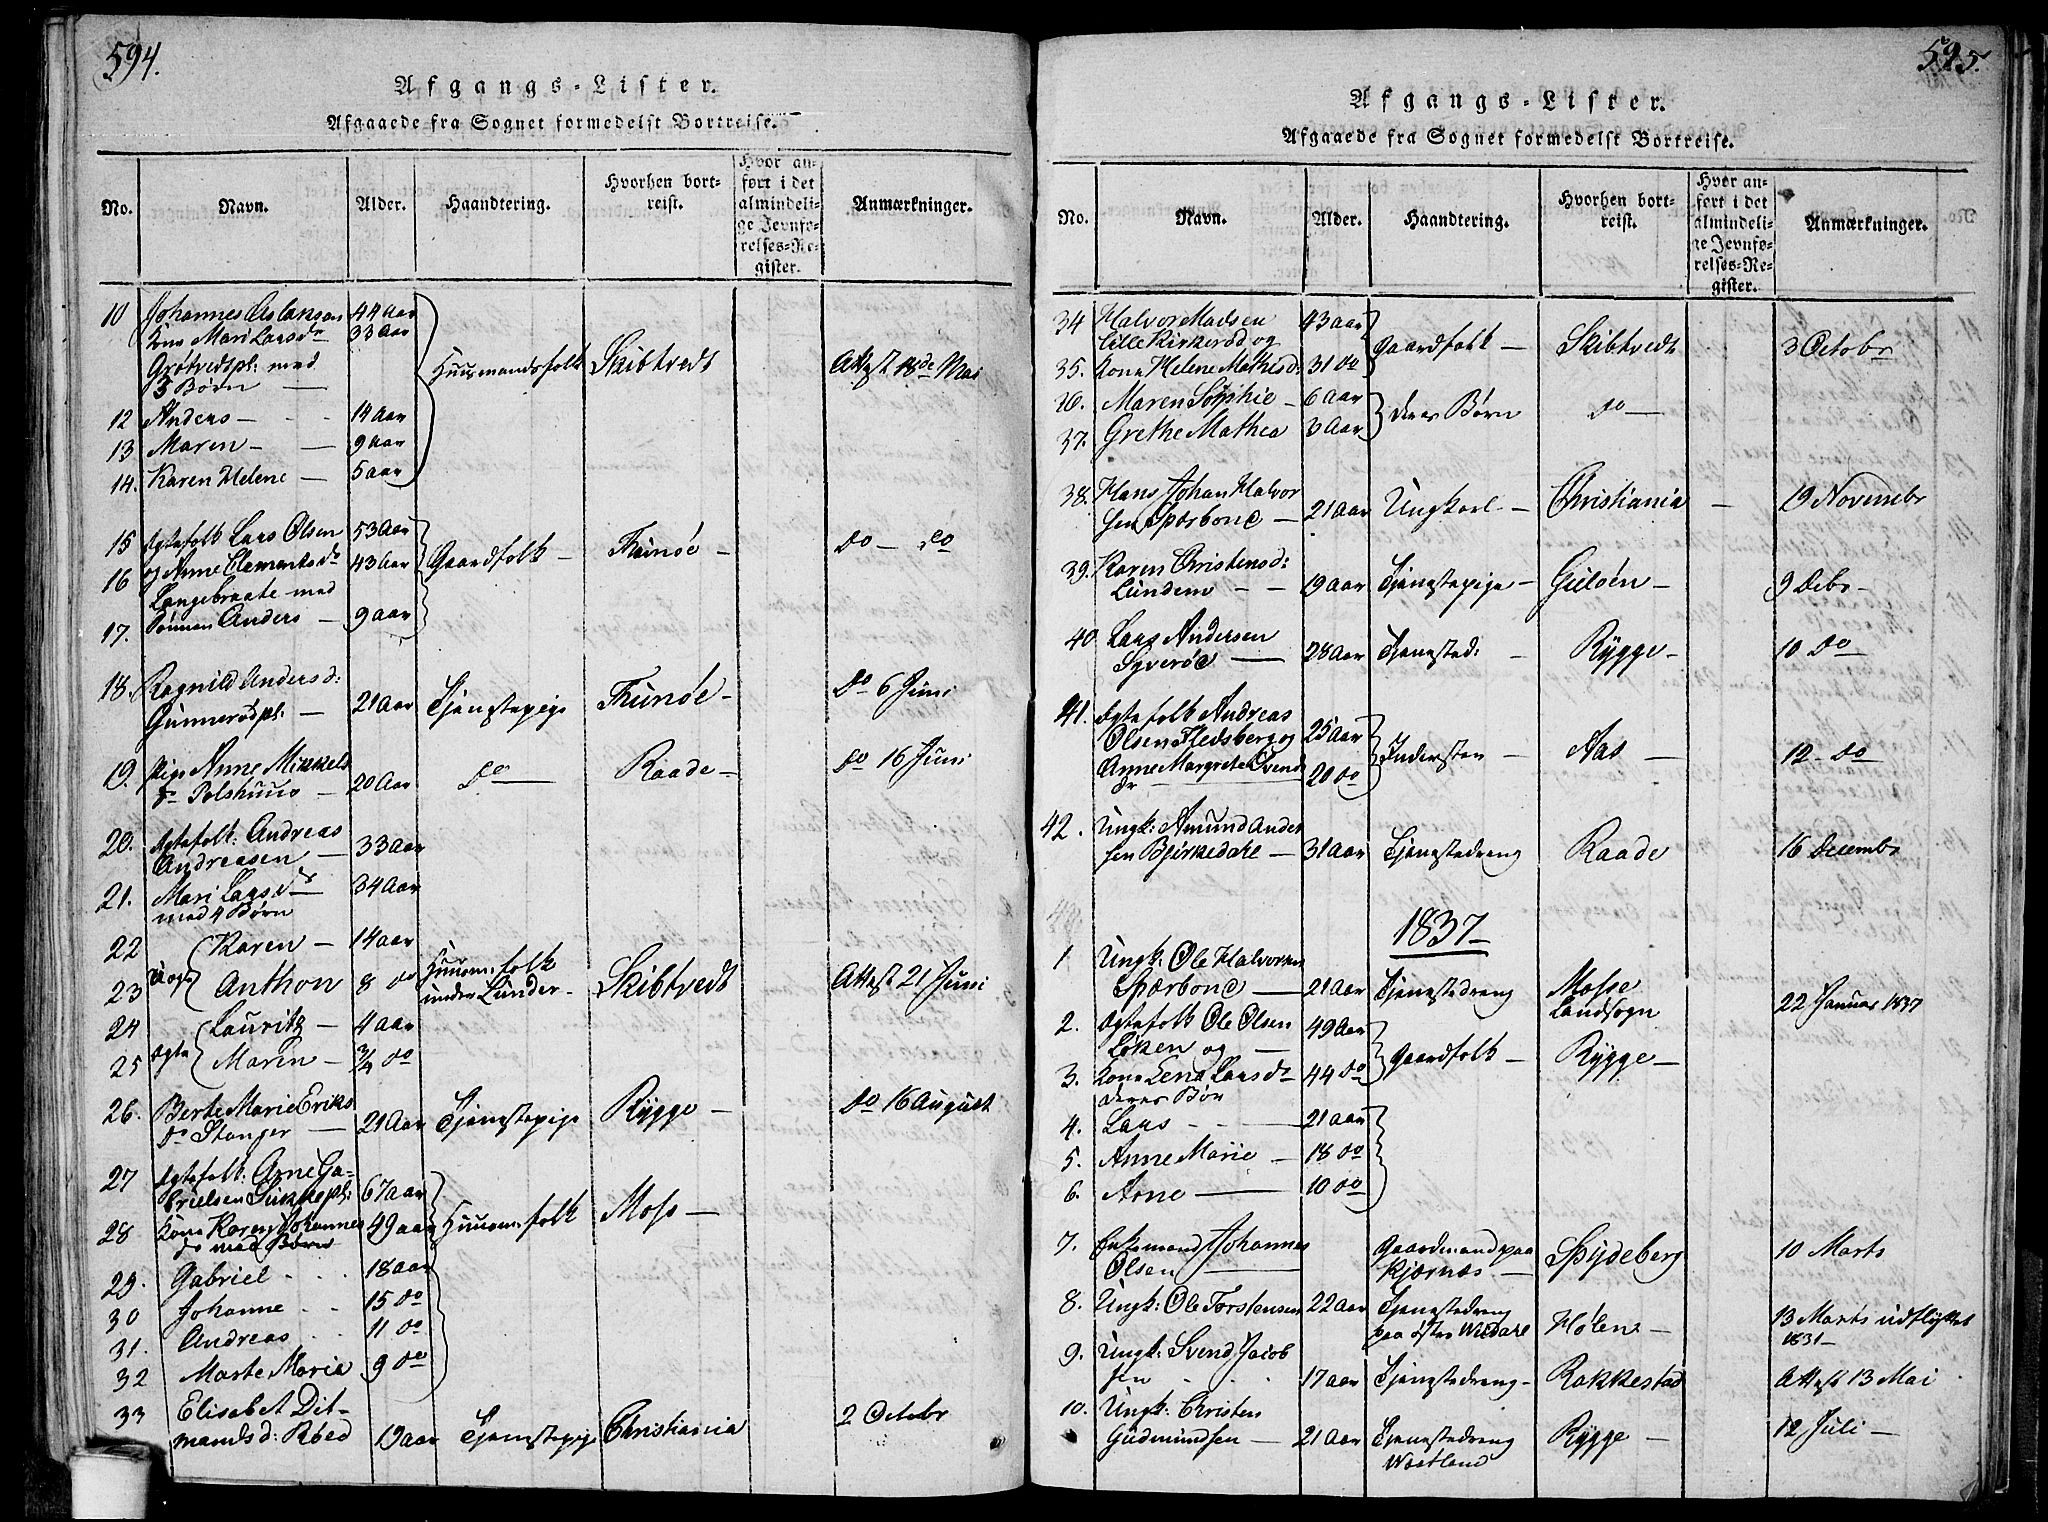 594.
Afgangs-Lister.
Afgaaede fra Sognet formedelst Bortreise.
No. Navn. Alder. Haandtering. Hvorhen bortreist. Hvor anført i det almindelige Jevnførelses-Register. Anmærkninger.
10 Johannes Aslansen 44 aar
Kone Mari Larsdr 33 aar
Grøtvedtpl: med Huusmandsfolk Skibtvedt Attest 18de Mai
3 Børn —
12 Anders — 14 aar
13 Maren — 9 aar
14. Karen Helene — 5 aar
15 Ægtefolk Lars Olsen 53 Aar
16 og Anne Clementsdr 43 Aar Gaardfolk — Thunøe — do — do
Langebraate med
17. Sønnen Anders — 9 aar
18. Ragnild Andersd:
Gunnerødpl: — 21 aar Tjenestepige Thunøe — do 6 Juni
19. pige Anne Mikkels
dr Polshuus — 20 Aar do — Raade — do 16 Juni
20. Ægtefolk: Andreas
Andreasen — 33 aar
21. Mari Larsdr 34 Aar
med 4 Børn
22 Karen — 14 aar
23 Uægte Anthon 8 do Huusm: folk under Lunder — Skibtvedt Attest 21 Juni
24 Lauritz — 4 aar
25 Ægte Maren — 3/4 do
26. Berte Marie Eriks
dr Stanger — 21 Aar Tjenestepige Rygge — do 16 August
27 Ægtefolk: Arne Ga-
brielsen Sukkepl: 67 aar
28 Kone Karen Johannes 49 aar Huusm: folk Moss —
dr med Børn
29. Gabriel . . . 18 aar
30 Johanne . . 15 do
31. Andreas . . 11 do
32 Marte Maria 9 do
33 Elisabet Dit-
mandsd: Røed 19 aar Tjenestepige Christiania 2 Octobr
595.
Afgangs-Lister.
Afgaaede fra Sognet formedelst Bortreise.
No. Navn. Alder. Haandtering. Hvorhen bortreist. Hvor anført i det almindelige Jevnførelses-Register. Anmærkninger.
34 Halvor Madsen 43 aar
Lille Kirkerød og Gaardfolk — Skibtvedt 3 Octobr
35. Kone Helene Mathisd: 31 do
36. Maren Sophie — 6 aar
37. Grethe Mathea 3 Aar deres Børn do —
38. Hans Johan Halvor
sen Spærbond — 21 aar Ungkarl — Christiania — 19 Novembr
39. Karen Christensd:
Lundem — — 19 aar Tjenestepige — Guløen — 9 Debr —
40 Lars Andersen
Syverød — 28 aar Tjenested: — Rygge — 10 do
41. Ægtefolk Andreas
Olsen Hedsberg og 25 aar
Anne Margrete Svends Indersten — Aas — 12 — do
dr — 20 do
42. Ungk: Amund Ander
sen Bjirkedale — 31 aar Tjenestedreng Raade 16 Decembr
1837
1 Ungk: Ole Halvorsen
Spærbond — 21 aar Tjenestedreng Mosse Landsogn 22 Januar 1837
2. Ægtefolk Ole Olsen 49 Aar
Løken og — Gaardfolk — Rygge —
3. Kone Lene Larsdr 44 do
deres Bør
4. Lars — - — 21 aar
5. Anne Marie — 18 do
6. Arne — 10 do
7. Enkemand Johannes Gaardmand paa Spydeberg 10 Marts
Olsen — Kjærnæs —
8. Ungk: Ole Torstensen 22 aar Tjenestedreng
paa østre Wedale Hølen — 13 Marts udflyttet 1831 —
9. Ungk: Svend Jacob
sen . . . 17 aar Tjenestedreng — Rakkestad Attest 13 Mai
10. Ungk: Christen
Gudmundsen — 21 Aar Tjenestedreng Rygge — 12 Juli —
Waatland